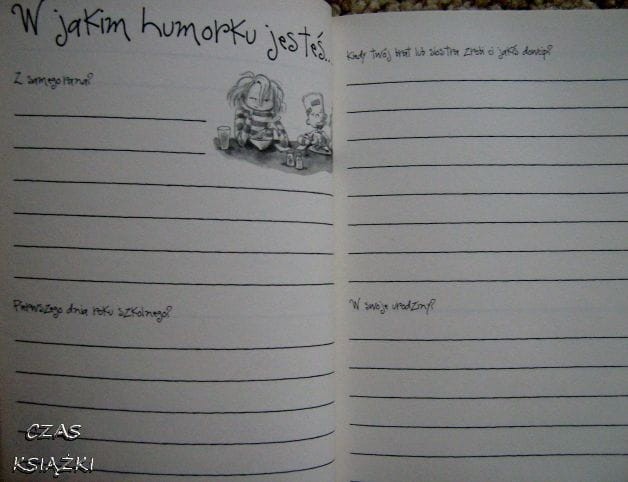 W jakim humorku jesteś..
Z samego rana?
Pierwszego dnia roku szkolnego?
Kiedy twój brat lub siostra zrobi ci jakiś dowcip?
W swoje urodziny?
CZAS
KSIĄŻKI